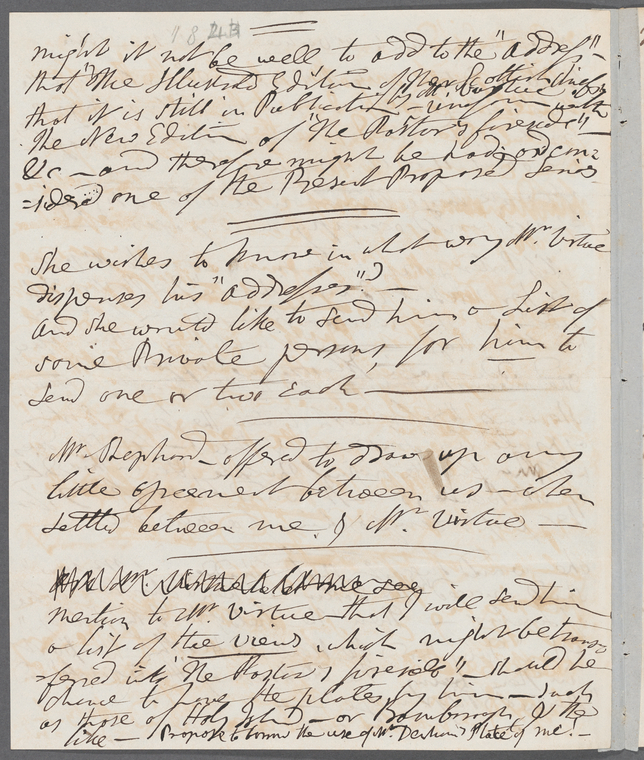 might it not be well to add to the "Addres"-
that "The Illustrd Edition of the Scottish Chiefs
that it is still in Publication by Mr Virtue
The New Edition of "The Pastor's fireside"
&c - and therefore might be had, or con=
=sidered one of the Present Proposed Series
She wishes to know in what way Mr. Virtue
dispenses his "addresses"? -
and she would like to send him a List of
some Private persons, for him to
send one or two each
Mr. Shephard - offered to draw up any
little agreement between us - when
settled between me & Mr. Virtue -
mention to Mr. Virtue that I will send him
a list of the views which might be trans=
=ferred into "The Pastor's fireside" - should he
chance to have the plates by him - such
as those of Holy Island - or Bamborough, & the
like - Propose to him the use of Mr Derham's Plate of me! -